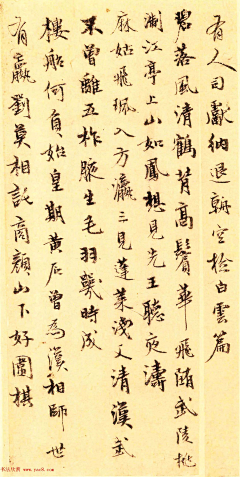 有人司獻納退朝空檢白雲篇
碧落風清鶴背高鬢華飛雨武陵桃
湘江亭上山如鳳想見先王聽奕濤
麻姑飛珮入方瀛三見蓮萊淺又清漢武
不曾離五柞腋生毛羽幾時成
樓船何負始皇期黃石曾為漢相師世
有嬴劉莫相記商顏山下好圍棋